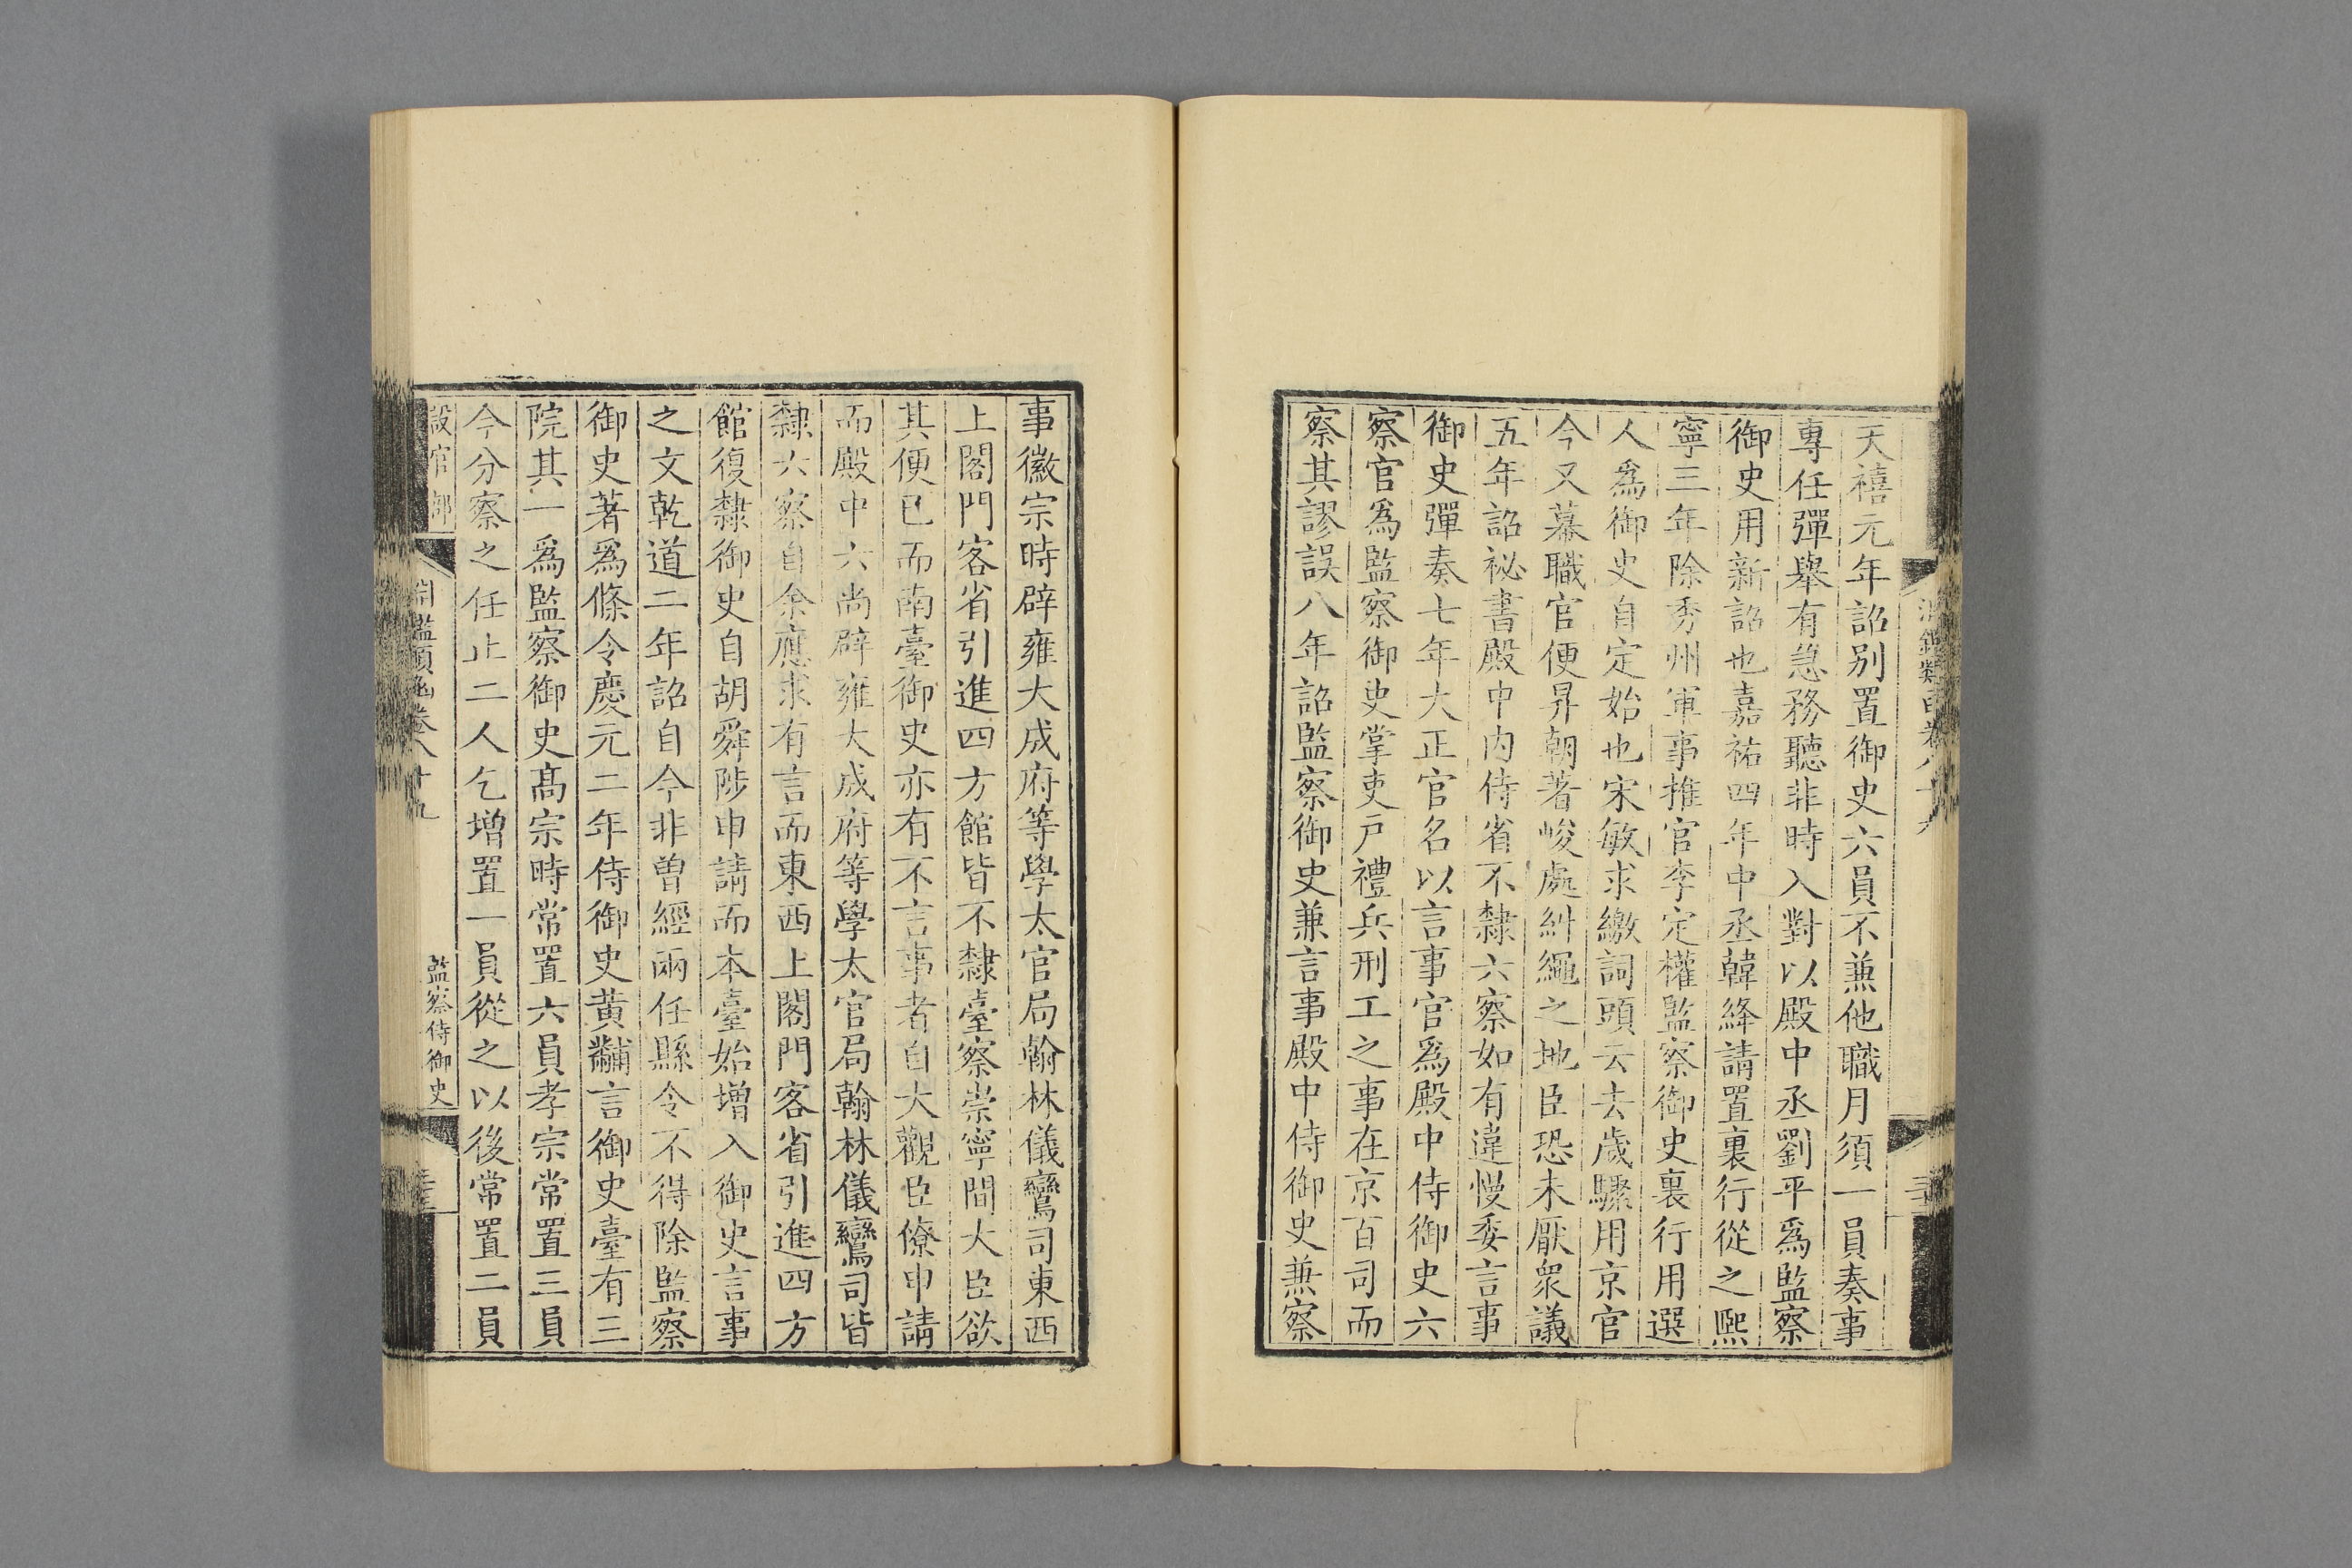 天禧元年詔別置御史六員不兼他職月須一員奏事
專任彈舉有急務聽非時入對以殿中丞劉平爲監察
御史用新詔也嘉祐四年中丞韓絳請置裏行從之熙
寧三年除秀州軍事推官李定權監察御史裏行用選
人爲御史自定始也宋敏求繳詞頭云去歲驟用京官
今又幕職官便昇朝著峻處糾繩之地臣恐未厭衆議
五年詔祕書殿中內侍省不隸六察如有違慢委言事
御史彈奏七年大正官名以言事官爲殿中侍御史六
察官爲監察御史掌吏戸禮兵刑工之事在京百司而
察其謬誤八年詔監察御史兼言事殿中侍御史兼察
事徽宗時辟雍大成府等學太官局翰林儀鸞司東西
上閣門客省引進四方館皆不隸臺察崇寧間大臣欲
其便已而南臺御史亦有不言事者自大觀臣僚申請
而殿中六尚辟雍大成府等學太官局翰林儀鸞司皆
隸六察自余應求有言而東西上閣門客省引進四方
館復隸御史自胡舜陟申請而本臺始增入御史言事
之文乾道二年詔自今非曽經兩任縣令不得除監察
御史著爲條令慶元二年侍御史黄黼言御史臺有三
院其一爲監察御史髙宗時常置六員孝宗常置三員
今分察之任止二人乞增置一員從之以後常置二員
設官部
淵鑑類函卷八十九
監察侍御史